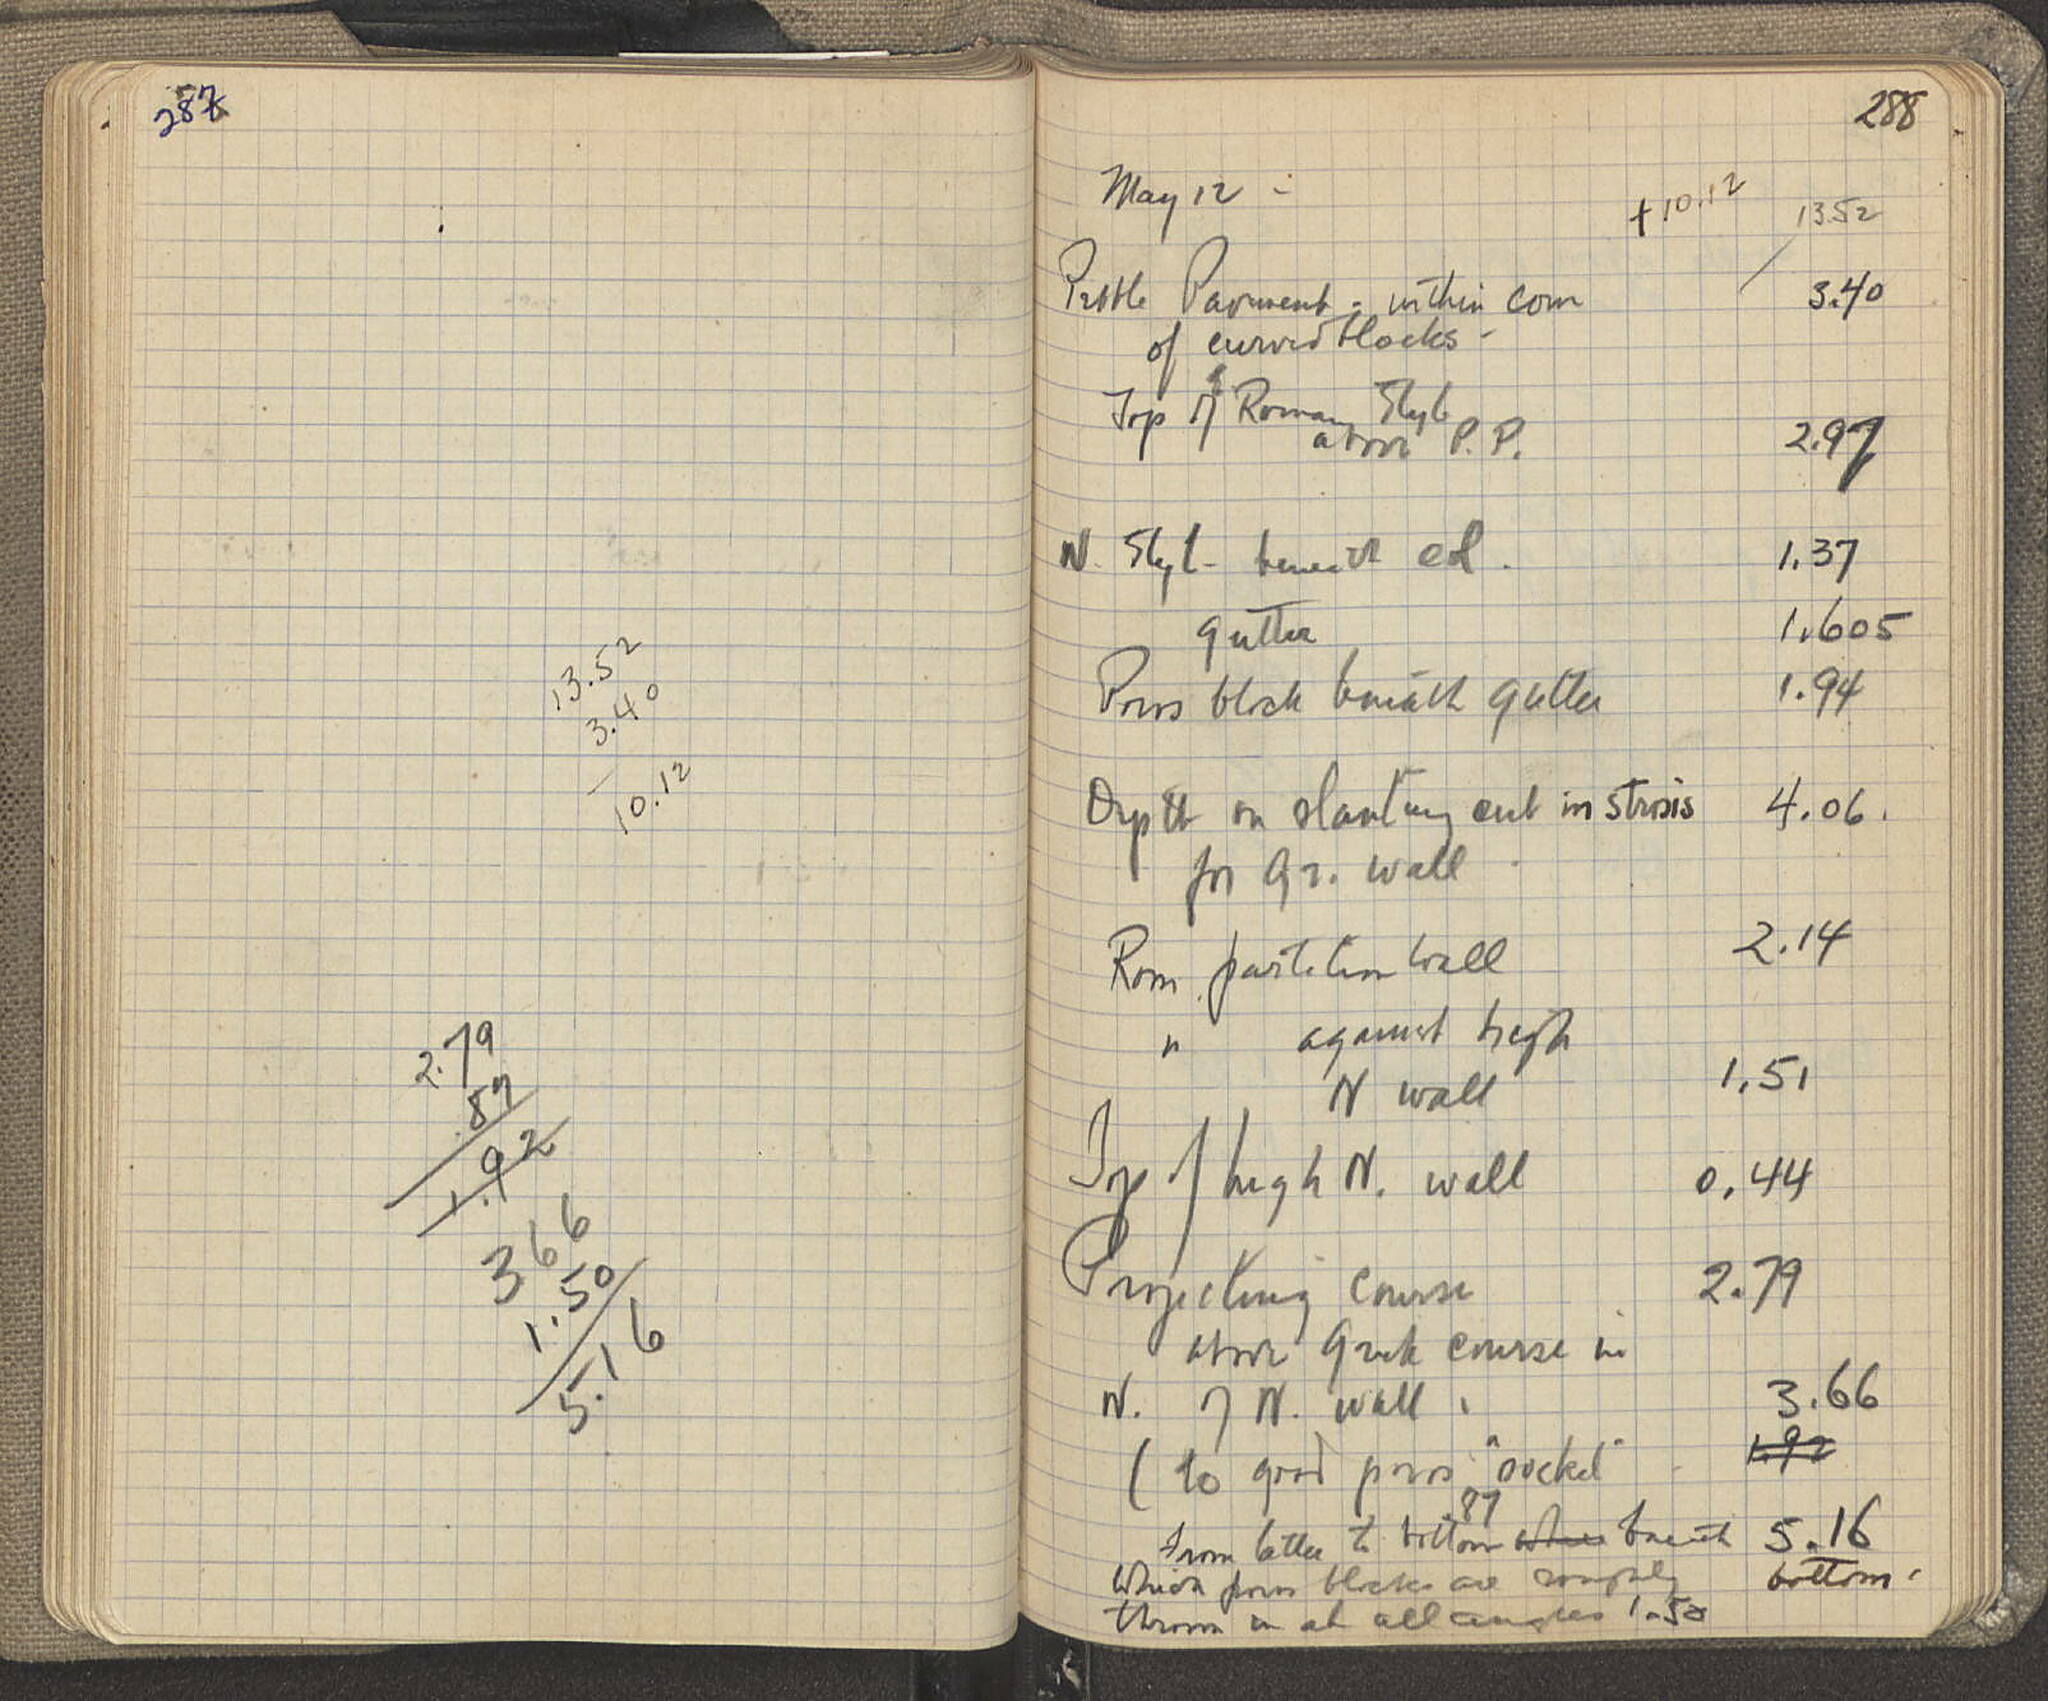 287
13.52
3.40
10.12
2.79
.87
1.92
3.66
1.50
5.16
288
May 12 -
+10.12 13.52
Pebble Pavement - within corn 3.40
of curved blocks -
Top of Roman Styl
above P.P. 2.97
N. Styl - beneath col. 1.37
gutter 1.605
Poros block beneath gutter 1.94
Depth on slanting cut in strosis 4.06.
for Gr. wall
Rom. partition wall 2.14
" against high
N wall 1.51
Top of high N. wall 0.44
Projecting course 2.79
above Greek course in
N. of N. wall. 3.66
( to good poros "socket" 1.92
87
From latter to bottom where beneath 5.16
which poros blocks are roughly bottom.
thrown in at all angles 1.50